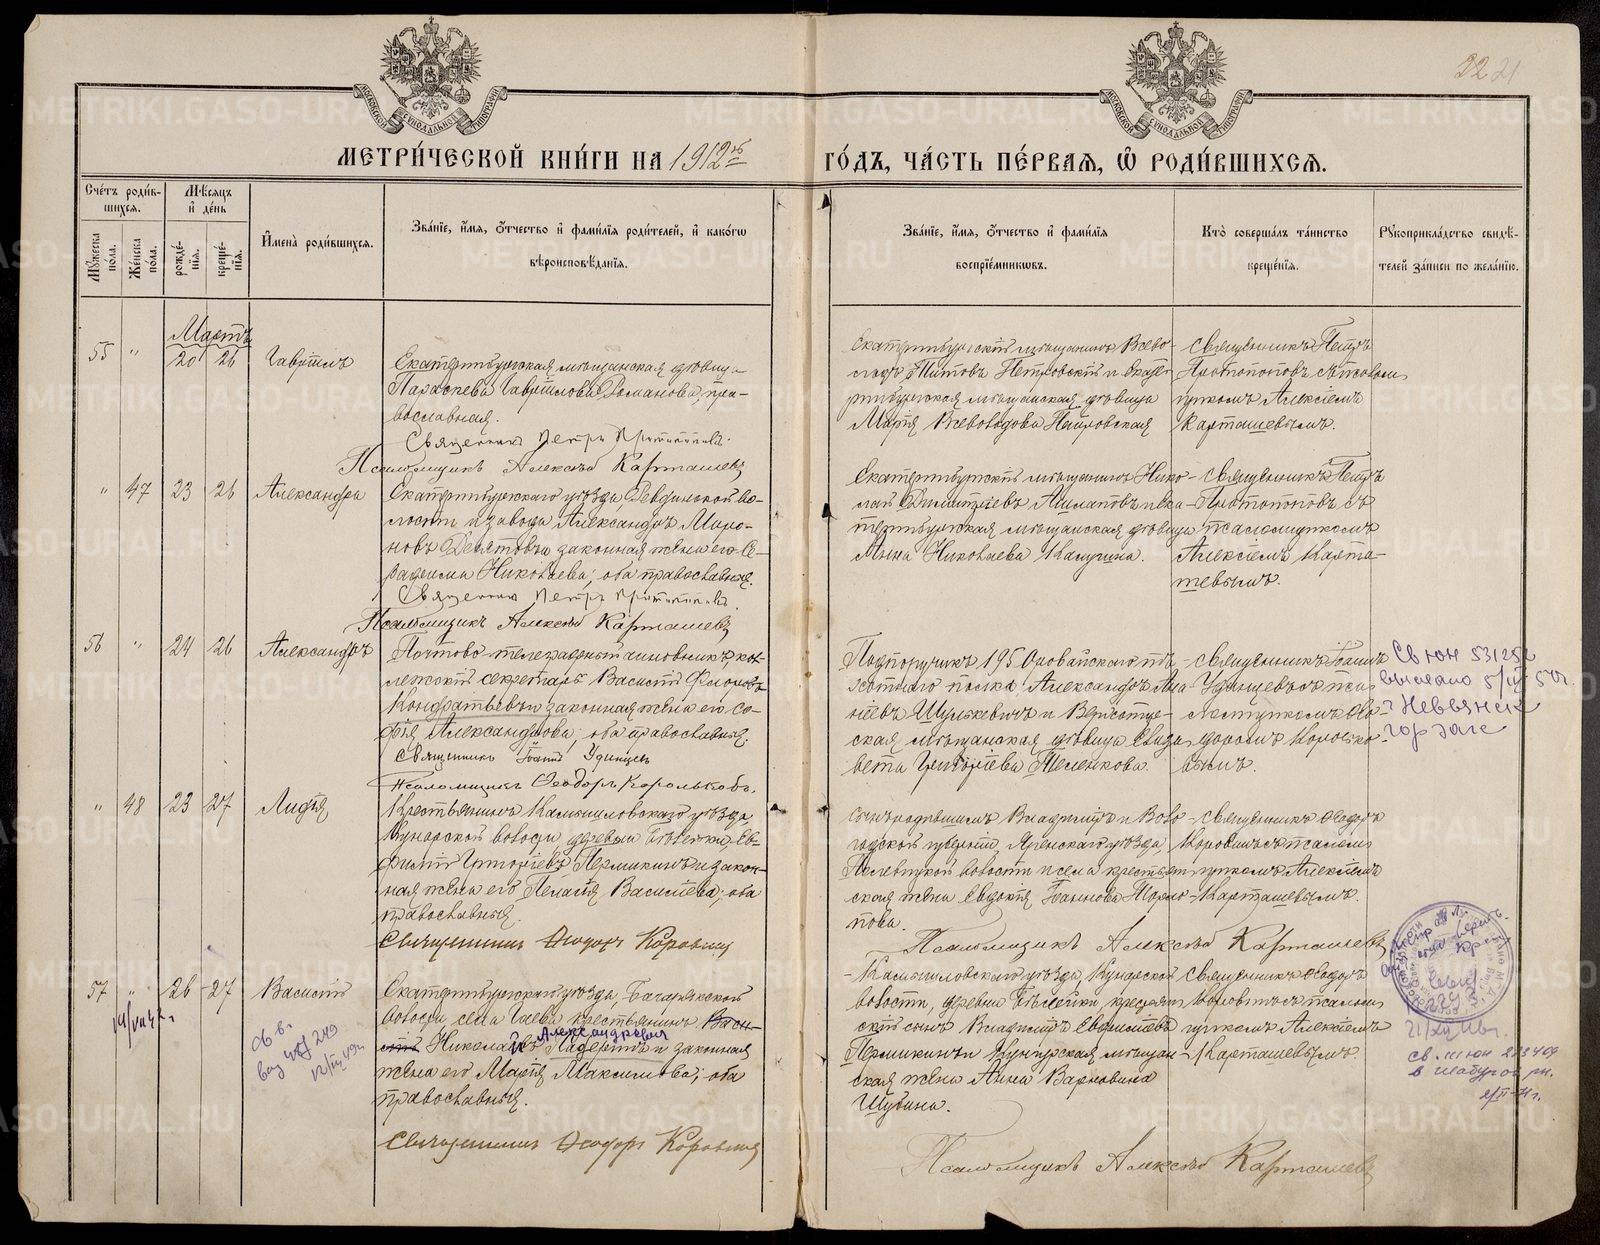 МОСКОВСКОЙ СѴНОДАЛЬНОЙ ТИПОГРАФІИ
МОСКОВСКОЙ СѴНОДАЛЬНОЙ ТИПОГРАФІИ
22 21
МЕТРИ́ЧЕСКОЙ КНИ́ГИ НА 1912 ГО́ДЪ, ЧА́СТЬ ПЕ́РВАѦ, Ѡ РОДИ́ВШИХСѦ.
Сче́тъ роди́в-
шихсѧ.
Мѣ́сѧцъ
и҆ де́нь
Мꙋ́жеска по́ла.
Же́нска по́ла.
рожде́-
нїѧ.
креще́-
нїѧ.
И҆мена̀ роди́вшихсѧ.
Зва́нїе, и҆́мѧ, ѻ҆́тчество и҆ фами́лїѧ роди́телей, и҆ како́гѡ
вѣроисповѣ́данїѧ.
Зва́нїе, и҆́мѧ, ѻ҆́тчество и҆ фами́лїѧ
воспрїе́мникѡвъ.
Кто̀ соверша́лъ та́инство
креще́нїѧ.
Рꙋкоприкла́дство свидѣ́-
телей за́писи по жела́нїю.
Мартъ
55 " 20 26 Гавріилъ
Екатеринбургская мѣщанская дѣвица
Параскева Гавріилова Романова, пра-
вославная.
Священникъ Петръ Протопоповъ.
Псаломщикъ Алексѣй Карташевъ
Екатеринбургскій мѣщанинъ Всево-
лодъ Титовъ Петровскій и Екате-
ринбургская мѣщанская дѣвица
Марія Всеволодова Петровская
Священникъ Петръ
Протопоповъ съ псалом-
щикомъ Алексіемъ
Карташевымъ.
" 47 23 26 Александра
Екатеринбургскаго уѣзда, Ревдинской во-
лости и завода Александръ Миро-
новъ Девятовъ и законная жена его Се-
рафима Николаева; оба православные.
Священникъ Петръ Протопоповъ.
Псаломщикъ Алексѣй Карташевъ
Екатеринбургскій мѣщанинъ Нико-
лай Димитріевъ и Ека-
теринбургская мѣщанская дѣвица
Анна Николаева Калугина.
Священникъ Петръ
Протопоповъ съ
псаломщикомъ
Алексіемъ Карта-
шевымъ.
56 " 24 26 Александръ
Почтово-телеграфный чиновникъ, кол-
лежскій секретарь Василій Флоровъ
Кондратьевъ и законная жена его Со-
фія Александрова; оба православные.
Священникъ Іоаннъ Удинцевъ
Псаломщикъ Ѳеодоръ Корольковъ.
Подпоручикъ 195 Оровайскаго пѣ-
хотнаго полка Александръ Ана-
ніевъ Шулькевичъ и Верхотур-
ская мѣщанская дѣвица Елиза-
вета Григоріева Теленкова.
Священникъ Іоаннъ
Удинцевъ съ пса-
ломщикомъ Ѳео-
доромъ Королько-
вымъ.
Св ЮН 531252
выслано
г Невьянск
гор загс
" 48 23 27 Лидія
Крестьянинъ Камышловскаго уѣзда,
Кунарской волости, деревни Бѣлейки, Ев-
фимій Григоріевъ Пермикинъ и закон-
ная жена его Пелагія Васильева; оба
православные.
Священникъ Ѳеодоръ Коровинъ
Сынъ родившимъ Владиміръ и Воло-
годской губерніи, Яренскаго уѣзда
волости и села крестьян-
ская жена Евдокія Іоаннова
Священникъ Ѳеодоръ
Коровинъ съ псалом-
щикомъ Алексіемъ
Карташевымъ.
Псаломщикъ Алексѣй Карташевъ
57 " 26 27 Василій
Екатеринбургскаго уѣзда, Багарякской
волости, села Гаева крестьянинъ Васи-
лій Николай Александрович
и законная
жена его Марія Максимова; оба
православные.
Священникъ Ѳеодоръ Коровинъ
Камышловскаго уѣзда, Кунарской
волости, деревни Бѣлейки, крестьян-
скій сынъ Владиміръ Евфиміевъ
Пермикинъ и Кунгурская мѣщан-
ская жена Анна Варнавина
Шубина.
Священникъ Ѳеодоръ
Коровинъ съ псалом-
щикомъ Алексіемъ
Карташевымъ.
Псаломщикъ Алексѣй Карташевъ
METRIKI.GASO-URAL.RU